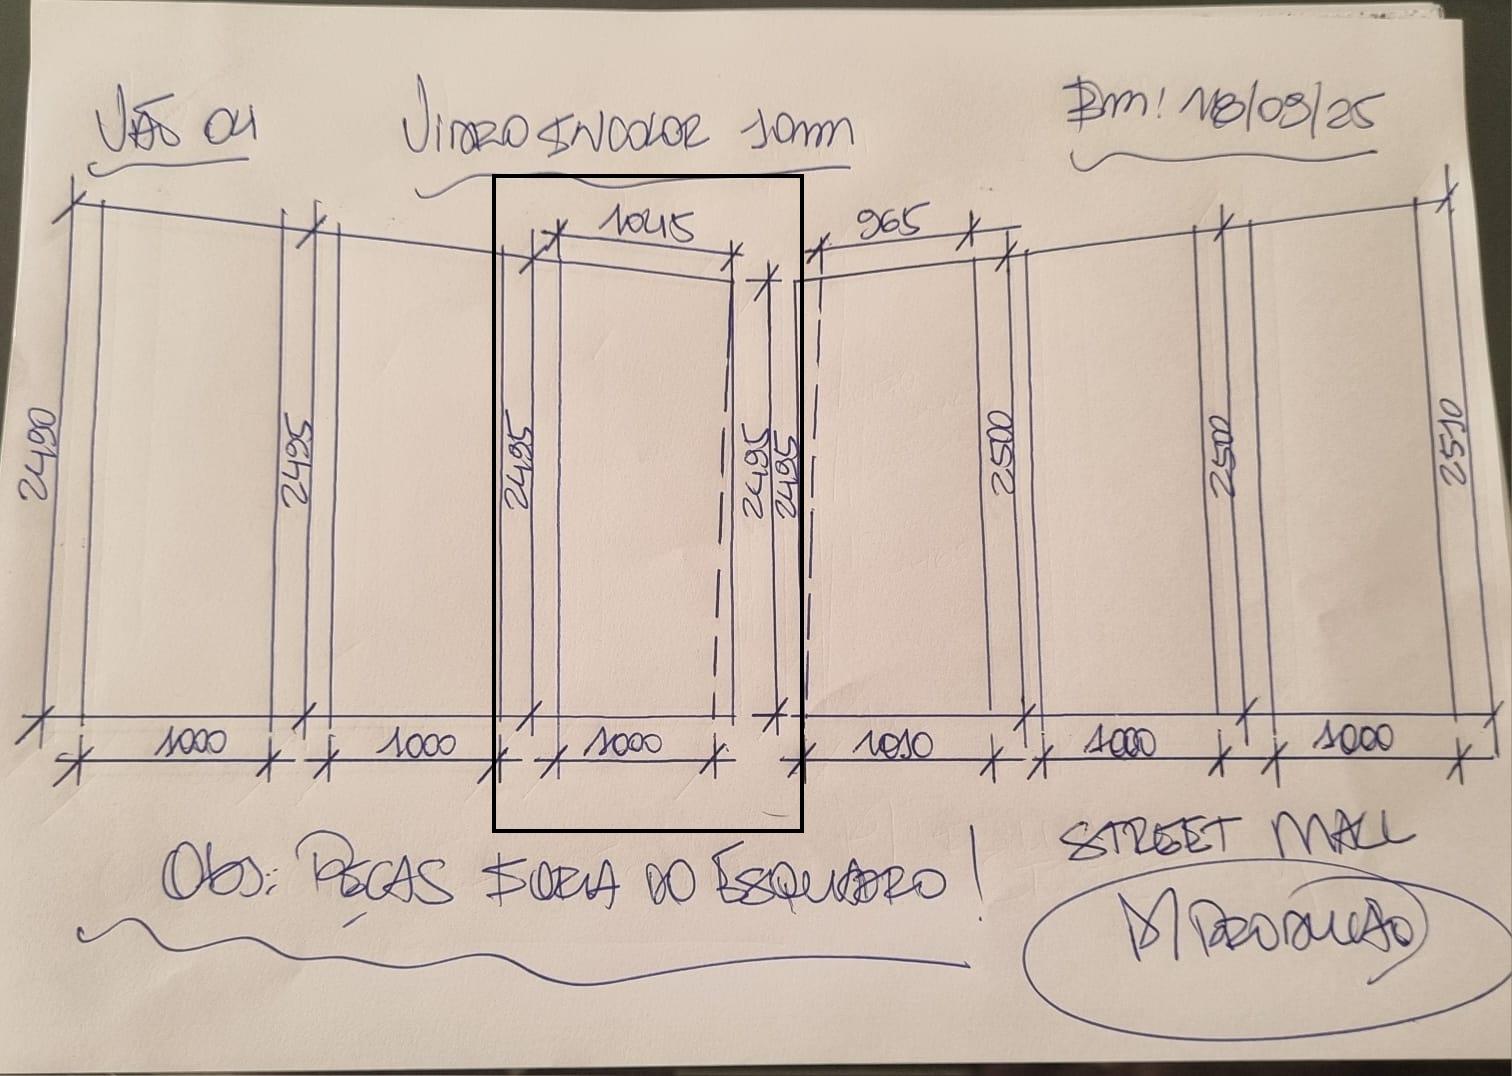 VÃO 04 VIDRO INCOLOR 10mm Em! 18/09/25
1045 965
2490 2495 2495 2495 2495 2500 2500 2510
1000 1000 1000 1010 1000 1000
STREET MALL
Obs: PEÇAS FORA DO ESQUADRO!
P/ PRODUÇÃO